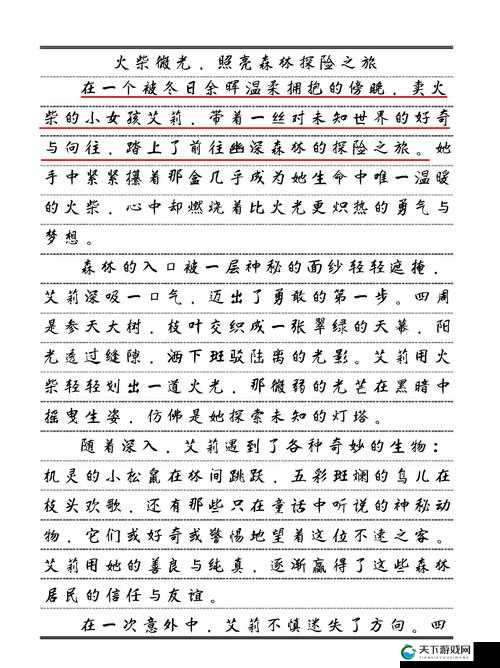 火柴微光，照亮森林探险之旅
在一个被冬日余晖温柔拥抱的傍晚，卖火
柴的小女孩艾莉，带着一丝对未知世界的好奇
与向往，踏上了前往幽深森林的探险之旅。她
手中紧紧攥着那盒几乎成为她生命中唯一温暖
的火柴，心中却燃烧着比火光更炽热的勇气与
梦想。
森林的入口被一层神秘的面纱轻轻遮掩，
艾莉深吸一口气，迈出了勇敢的第一步。四周
是参天大树，枝叶交织成一张翠绿的天幕，阳
光透过缝隙，洒下斑驳陆离的光影。艾莉用火
柴轻轻划出一道火光，那微弱的光芒在黑暗中
摇曳生姿，仿佛是她探索未知的灯塔。
随着深入，艾莉遇到了各种奇妙的生物：
机灵的小松鼠在林间跳跃，五彩斑斓的鸟儿在
枝头欢歌，还有那些只在童话中听说的神秘动
物，它们或好奇或警惕地望着这位不速之客。
艾莉用她的善良与纯真，逐渐赢得了这些森林
居民的信任与友谊。
在一次意外中，艾莉不慎迷失了方向。四
天下游戏网